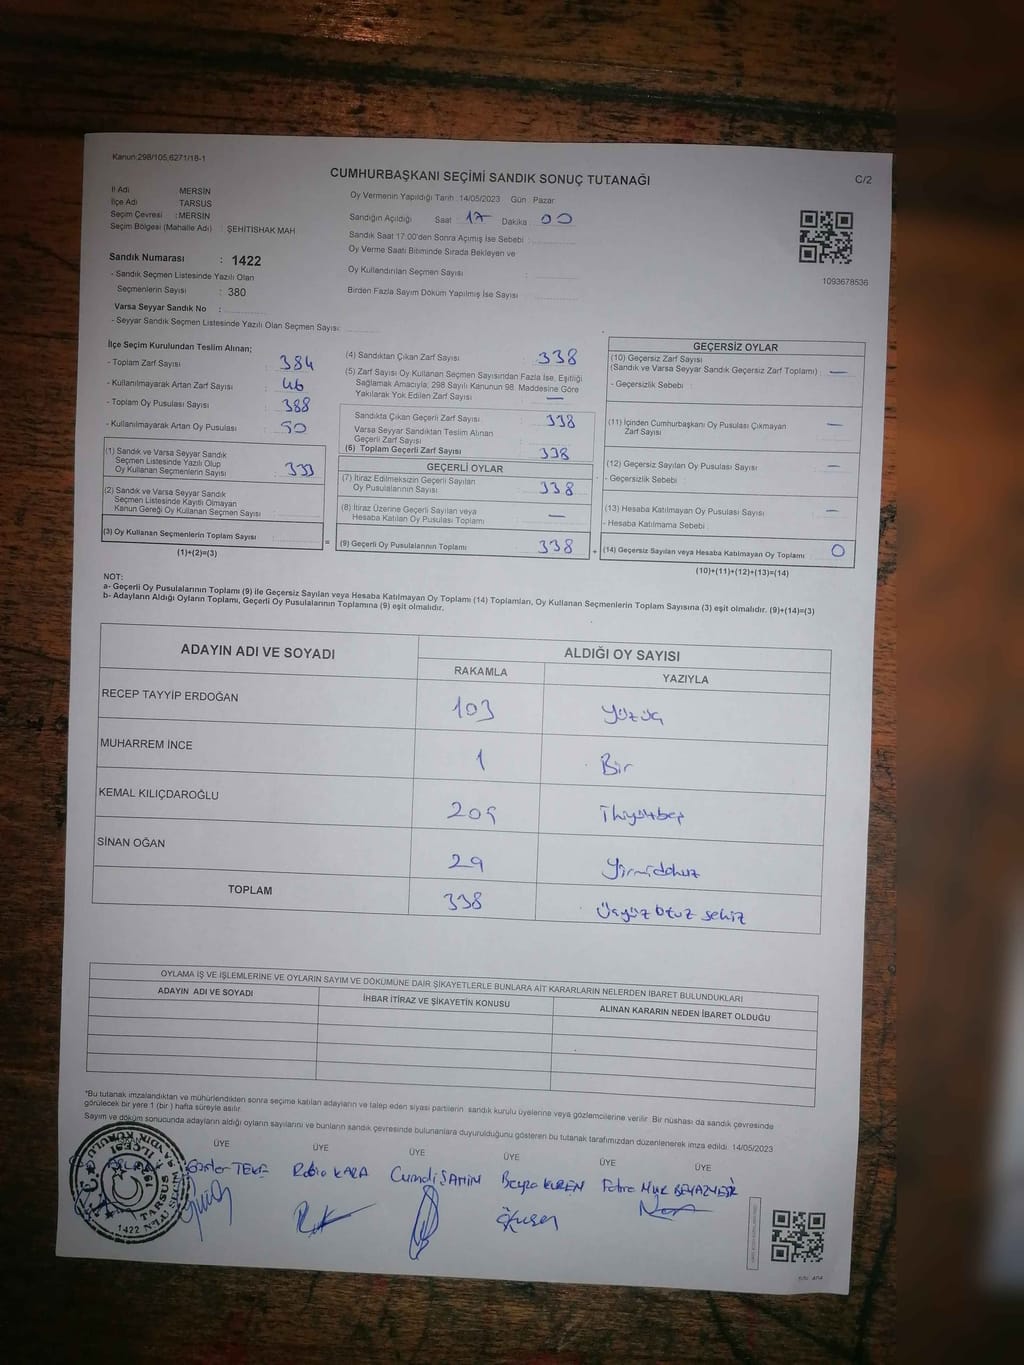 Kanun:298/105,6271/18-1
CUMHURBAŞKANI SEÇİMİ SANDIK SONUÇ TUTANAĞI
C/2
İl Adı MERSİN
İlçe Adı TARSUS
Seçim Çevresi : MERSİN
Seçim Bölgesi (Mahalle Adı) : ŞEHİTİSHAK MAH
Oy Vermenin Yapıldığı Tarih : 14/05/2023 Gün Pazar
Sandığın Açıldığı Saat : 17 Dakika : 00
Sandık Saat 17:00'den Sonra Açımış İse Sebebi :
Oy Verme Saati Bitiminde Sırada Bekleyen ve
Oy Kullandırılan Seçmen Sayısı :
Birden Fazla Sayım Döküm Yapılmış İse Sayısı :
1093678536
Sandık Numarası : 1422
- Sandık Seçmen Listesinde Yazılı Olan
Seçmenlerin Sayısı : 380
Varsa Seyyar Sandık No :
- Seyyar Sandık Seçmen Listesinde Yazılı Olan Seçmen Sayısı:
İlçe Seçim Kurulundan Teslim Alınan;
- Toplam Zarf Sayısı : 384
- Kullanılmayarak Artan Zarf Sayısı : 46
- Toplam Oy Pusulası Sayısı : 388
- Kullanılmayarak Artan Oy Pusulası : 50
(1) Sandık ve Varsa Seyyar Sandık
Seçmen Listesinde Yazılı Olup
Oy Kullanan Seçmenlerin Sayısı : 339
(2) Sandık ve Varsa Seyyar Sandık
Seçmen Listesinde Kayıtlı Olmayan
Kanun Gereği Oy Kullanan Seçmen Sayısı :
(3) Oy Kullanan Seçmenlerin Toplam Sayısı :
(1)+(2)=(3)
=
(4) Sandıktan Çıkan Zarf Sayısı : 338
(5) Zarf Sayısı Oy Kullanan Seçmen Sayısından Fazla İse, Eşitliği
Sağlamak Amacıyla, 298 Sayılı Kanunun 98. Maddesine Göre
Yakılarak Yok Edilen Zarf Sayısı : —
Sandıkta Çıkan Geçerli Zarf Sayısı : 338
Varsa Seyyar Sandıktan Teslim Alınan
Geçerli Zarf Sayısı :
(6) Toplam Geçerli Zarf Sayısı : 338
GEÇERLİ OYLAR
(7) İtiraz Edilmeksizin Geçerli Sayılan
Oy Pusulalarının Sayısı : 338
(8) İtiraz Üzerine Geçerli Sayılan veya
Hesaba Katılan Oy Pusulası Toplamı : —
(9) Geçerli Oy Pusulalarının Toplamı : 338
+
GEÇERSİZ OYLAR
(10) Geçersiz Zarf Sayısı
(Sandık ve Varsa Seyyar Sandık Geçersiz Zarf Toplamı) : —
- Geçersizlik Sebebi :
(11) İçinden Cumhurbaşkanı Oy Pusulası Çıkmayan
Zarf Sayısı : —
(12) Geçersiz Sayılan Oy Pusulası Sayısı : —
- Geçersizlik Sebebi :
(13) Hesaba Katılmayan Oy Pusulası Sayısı : —
- Hesaba Katılmama Sebebi :
(14) Geçersiz Sayılan veya Hesaba Katılmayan Oy Toplamı : 0
(10)+(11)+(12)+(13)=(14)
NOT:
a- Geçerli Oy Pusulalarının Toplamı (9) ile Geçersiz Sayılan veya Hesaba Katılmayan Oy Toplamı (14) Toplamları, Oy Kullanan Seçmenlerin Toplam Sayısına (3) eşit olmalıdır. (9)+(14)=(3)
b- Adayların Aldığı Oyların Toplamı, Geçerli Oy Pusulalarının Toplamına (9) eşit olmalıdır.
ADAYIN ADI VE SOYADI
ALDIĞI OY SAYISI
RAKAMLA YAZIYLA
RECEP TAYYİP ERDOĞAN 103 Yüzüç
MUHARREM İNCE 1 Bir
KEMAL KILIÇDAROĞLU 205 İkiyüzbeş
SİNAN OĞAN 29 Yirmidokuz
TOPLAM 338 Üçyüz Otuz sekiz
OYLAMA İŞ VE İŞLEMLERİNE VE OYLARIN SAYIM VE DÖKÜMÜNE DAİR ŞİKAYETLERLE BUNLARA AİT KARARLARIN NELERDEN İBARET BULUNDUKLARI
ADAYIN ADI VE SOYADI İHBAR İTİRAZ VE ŞİKAYETİN KONUSU ALINAN KARARIN NEDEN İBARET OLDUĞU
*Bu tutanak imzalandıktan ve mühürlendikten sonra seçime katılan adayların ve talep eden siyasi partilerin sandık kurulu üyelerine veya gözlemcilerine verilir. Bir nüshası da sandık çevresinde
görülecek bir yere 1 (bir ) hafta süreyle asılır.
Sayım ve döküm sonucunda adayların aldığı oyların sayılarını ve bunların sandık çevresinde bulunanlara duyurulduğunu gösteren bu tutanak tarafımızdan düzenlenerek imza edildi. 14/05/2023
ÜYE ÜYE ÜYE ÜYE ÜYE ÜYE
TEKE Rabia KARA Cumali ŞAHİN Beyza Fatma Nur
1422 TARSUS İLÇESİ